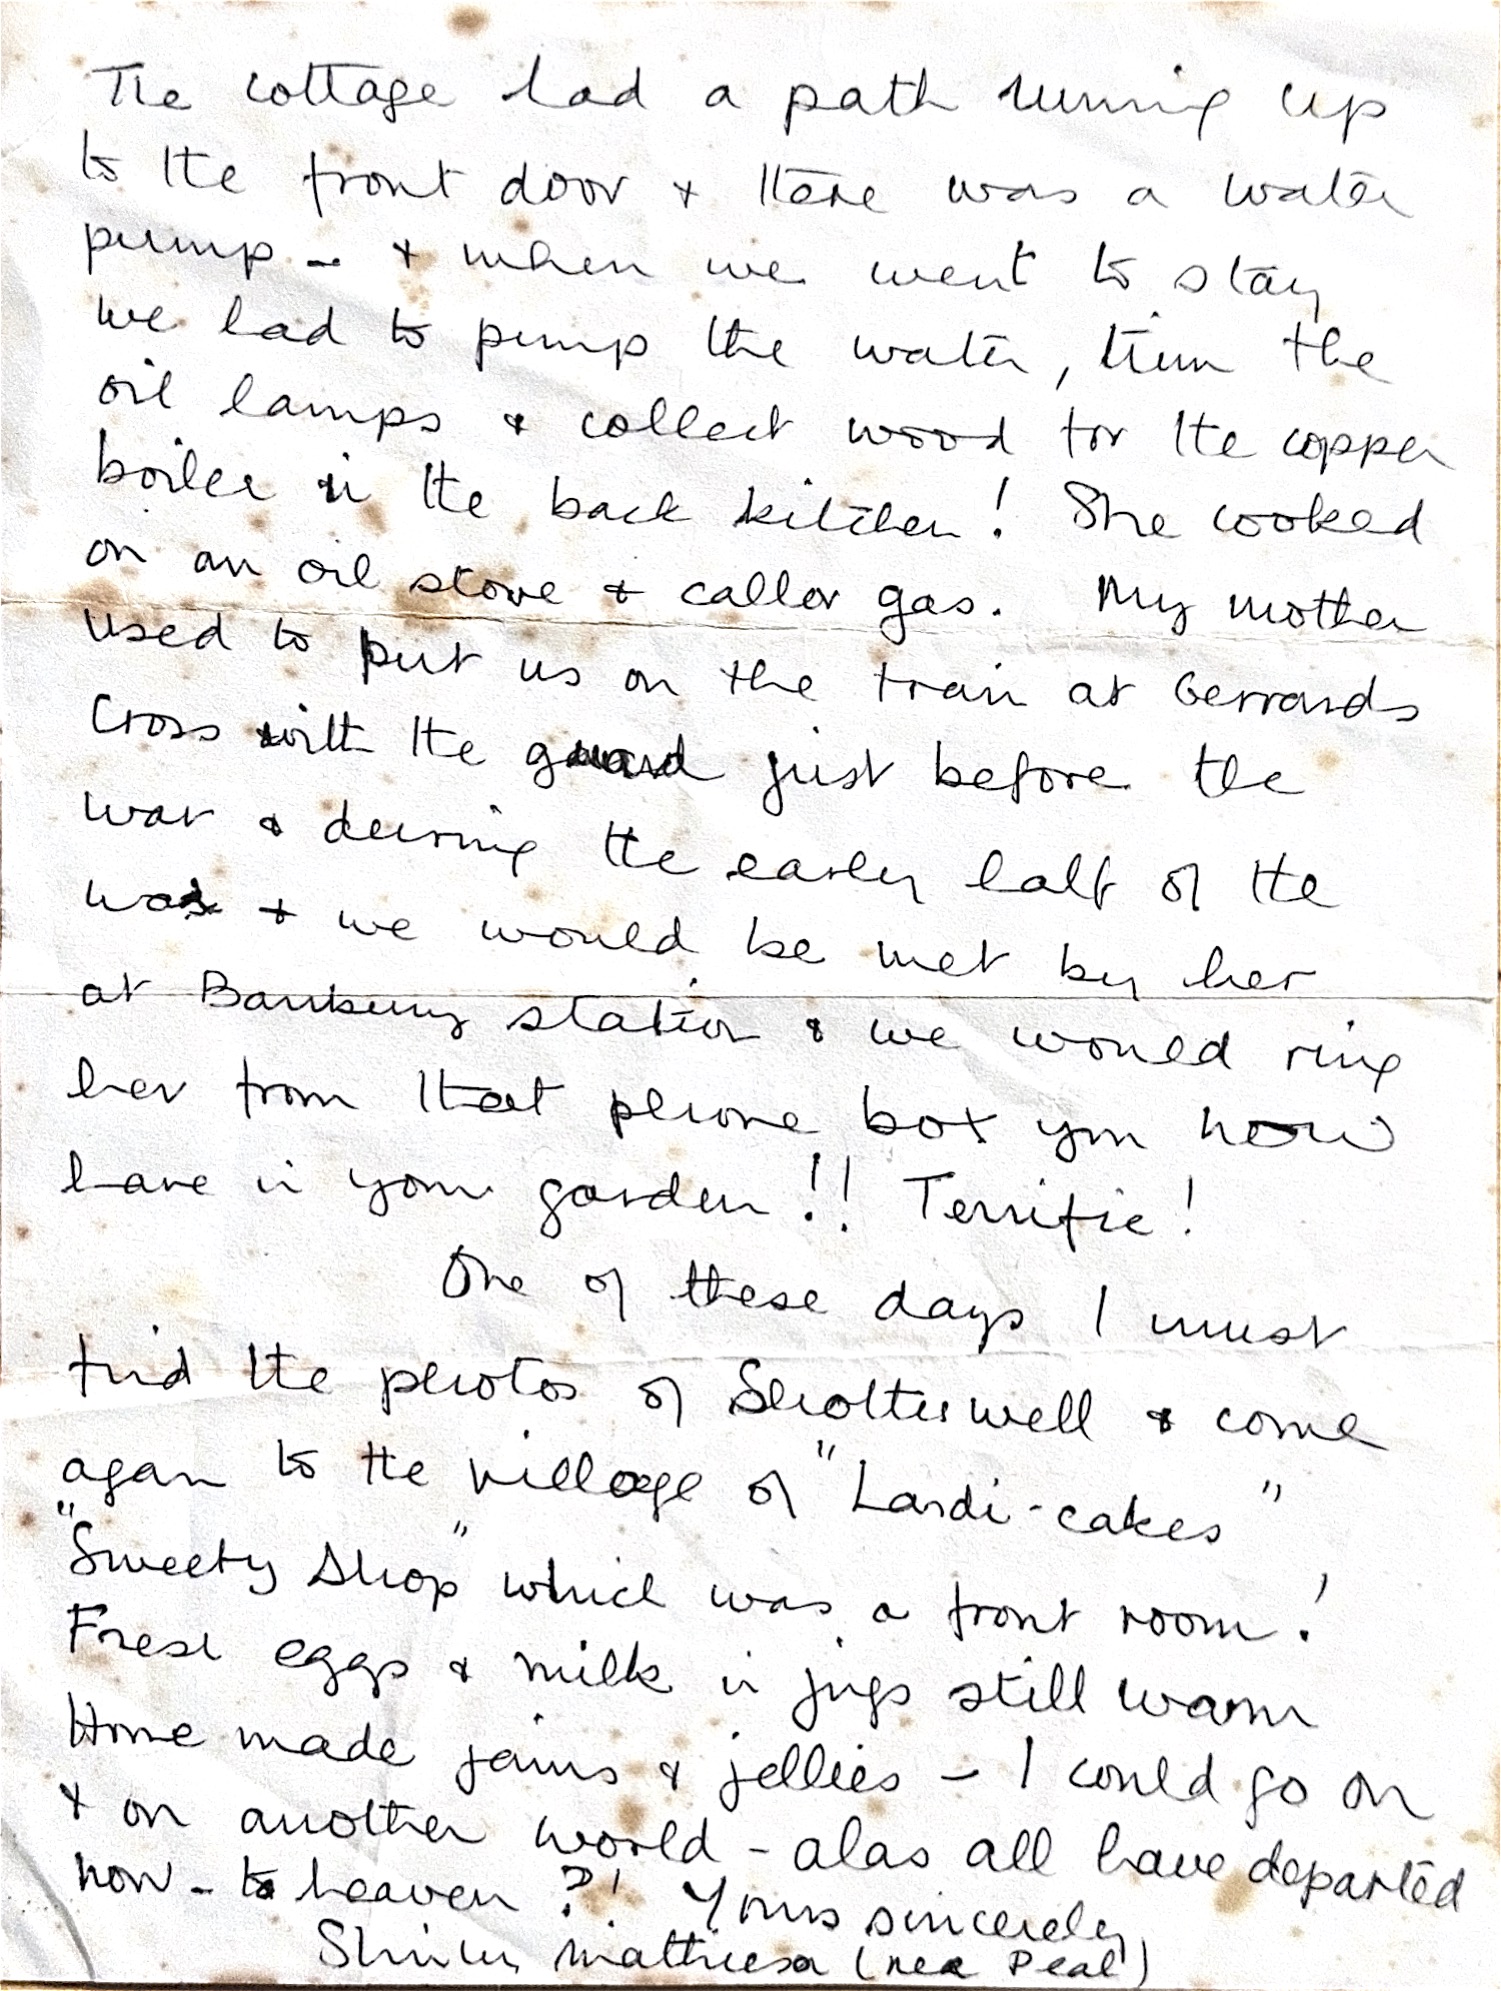 The cottage had a path running up
to the front door & there was a water
pump - & when we went to stay
we had to pump the water, trim the
oil lamps & collect wood for the copper
boiler in the back kitchen! She cooked
on an oil stove & callor gas. My mother
used to put us on the train at Gerrards
Cross with the guard just before the
war & during the early half of the
war & we would be met by her
at Banbury station & we would ring
her from that phone box you now
have in your garden!! Terrific!
One of these days I must
find the photos of Shotteswell & come
again to the village of "Lardi-cakes"
"Sweety Shop" which was a front room!
Fresh eggs & milk in jugs still warm
Home made jams & jellies - I could go on
& on another world - alas all have departed
now - to heaven ?! Yours sincerely
Shirley (nee Peal)